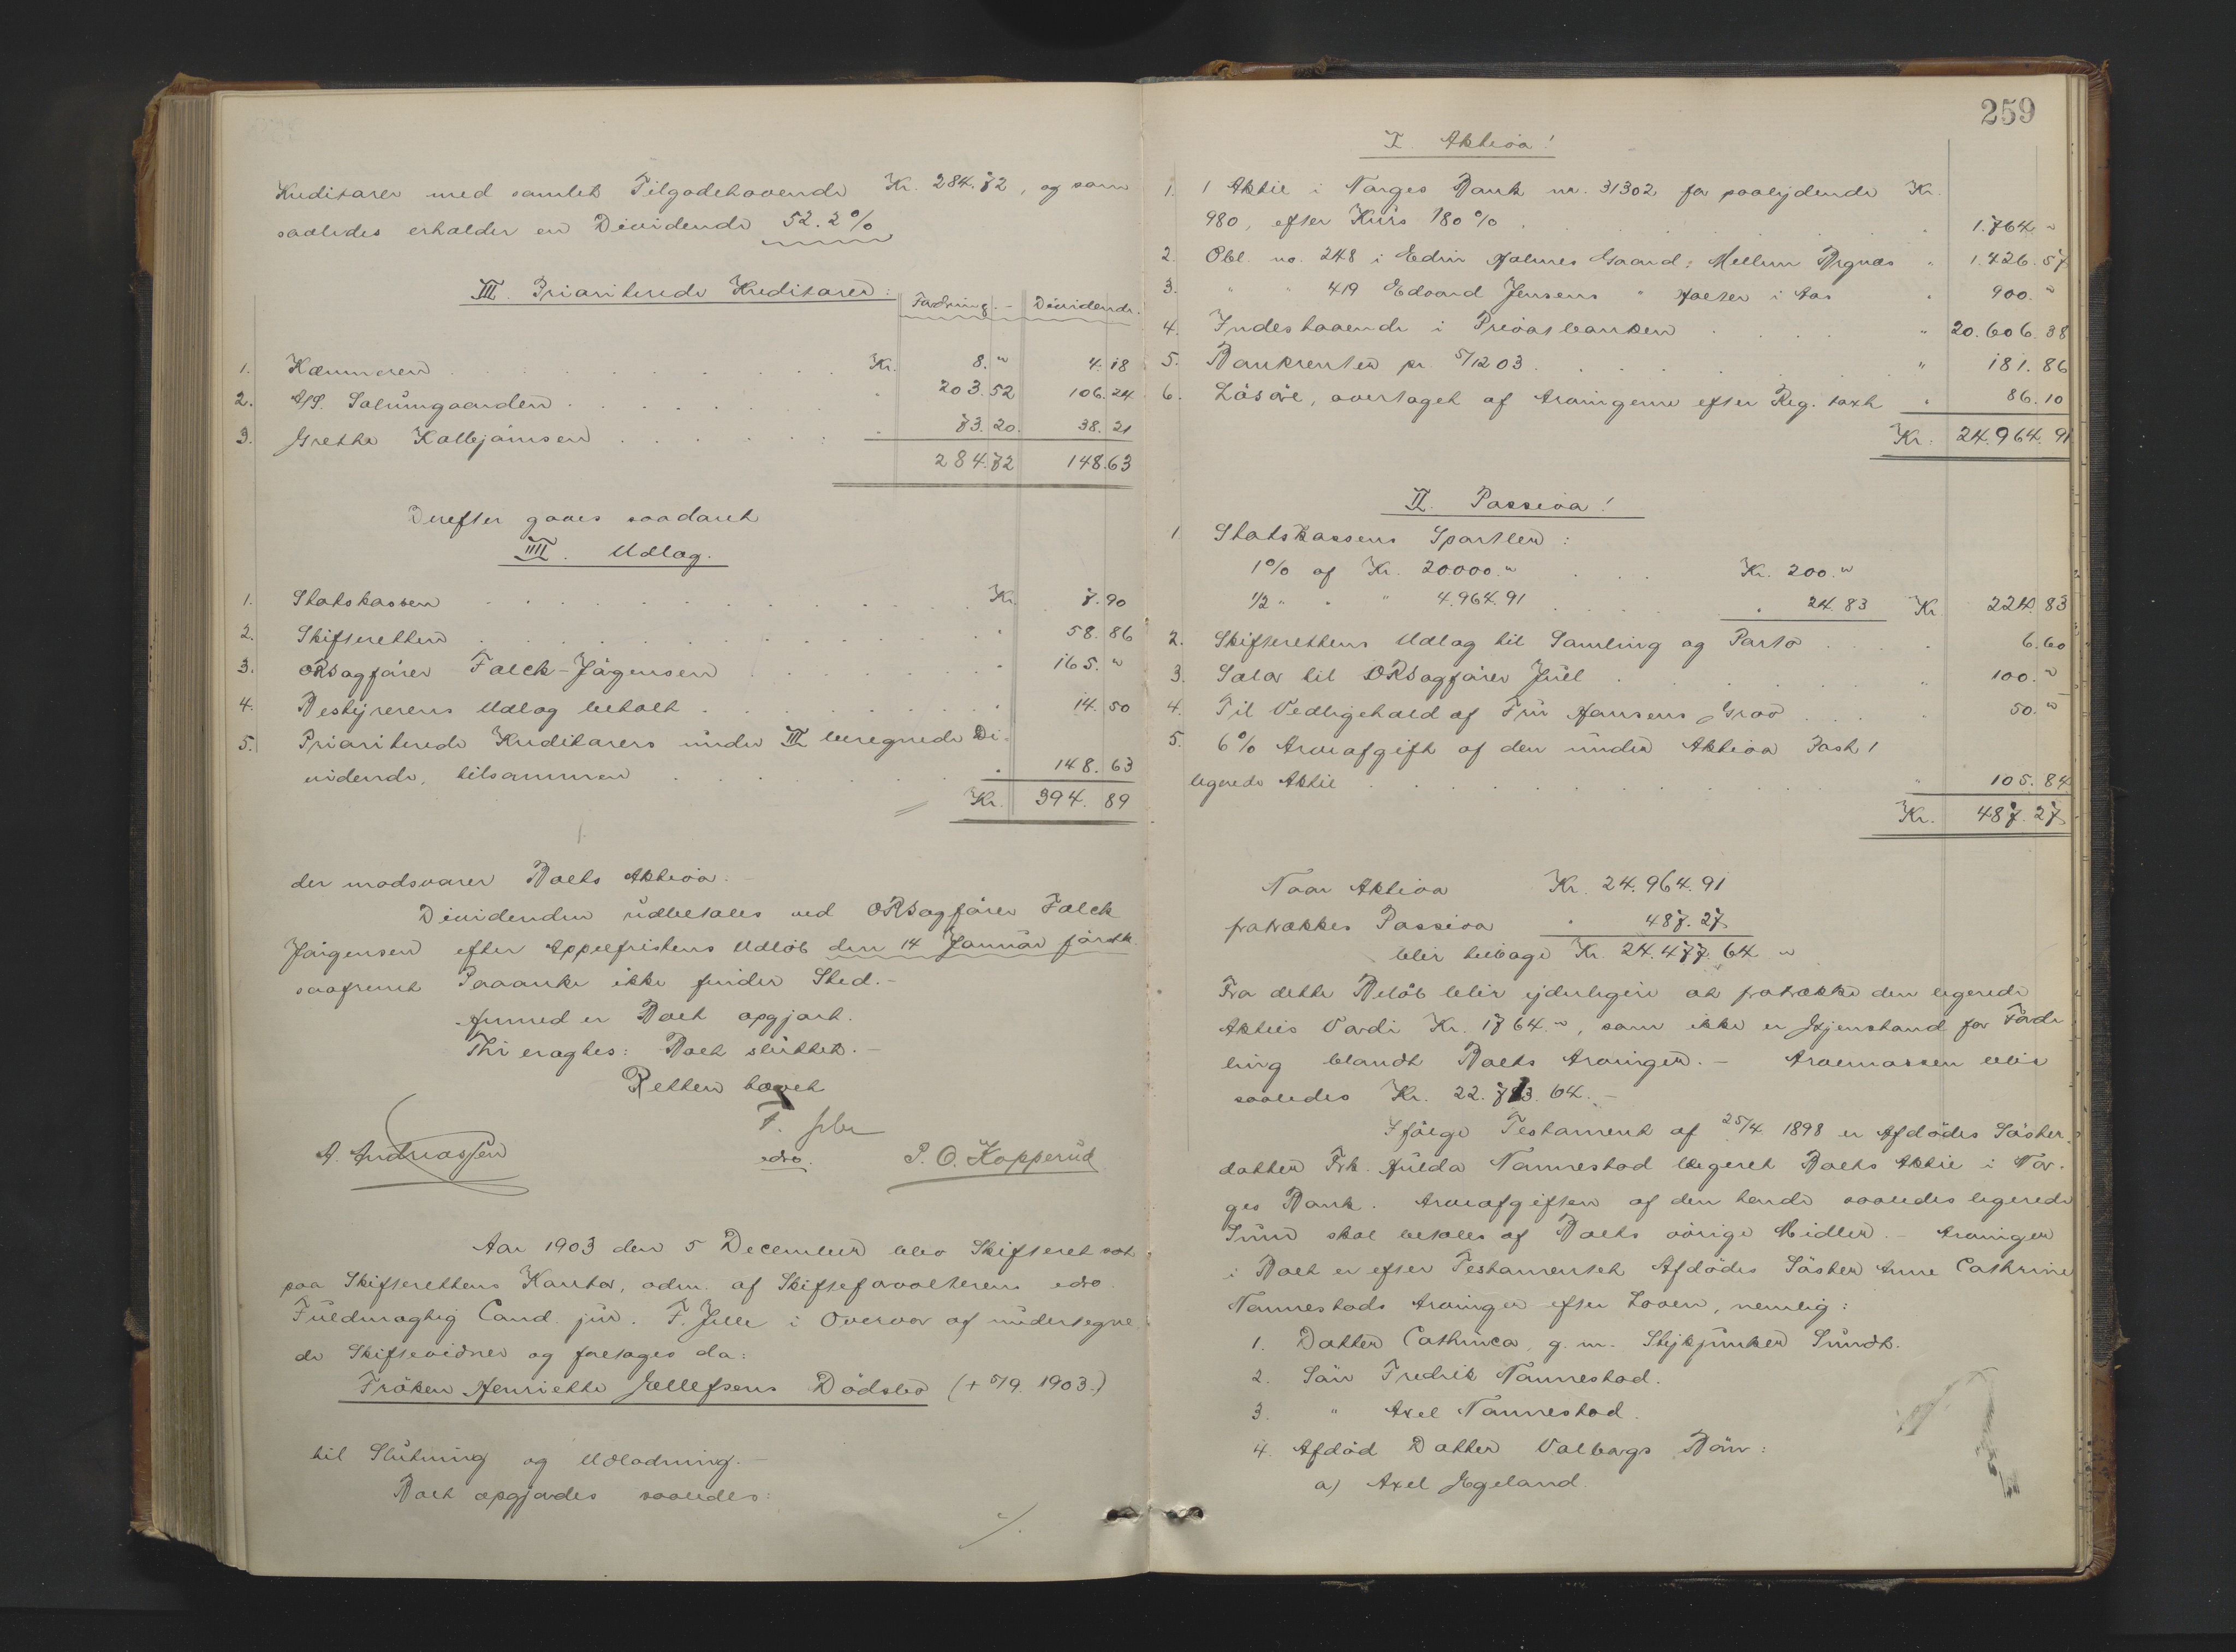 Kreditorer med samlet Tilgodehavende Kr. 284.72, og som
saaledes erholder en Dividende 52.2 %
III. Prioriterede Kreditorer:
Fordring. - Dividende.
1. Kæmneren . . . Kr. 8." 4.18
2. A/S. Solumgaarden . . . " 203.52 106.24
3. Grethe Kallejansen . . . " 73.20. 38.21
284.72 148.63
Derefter gaves saadant
IIII. Udlæg.
1. Statskassen . . . Kr. 7.90
2. Skifteretten . . . " 58.86
3. ORSagfører Falck-Jørgensen . . . " 165."
4. Bestyrerens Udlæg betalt . . . " 14.50
5. Prioriterede Kreditorers under III beregnede Di-
vidende, tilsammen . . . " 148.63
Kr. 394.89
der modsvarer Boets Aktiva.
Dividenden udbetales ved ORSagfører Falck
Jørgensen efter Appelfristens Udløb den 14 Januar førstk.
saafremt Paaanke ikke finder Sted.-
Hermed er Boet opgjort.
Thi eragtes: Boet sluttet.-
Retten hævet
F.
A. Andreassen
edv.
P. O. Kopperud
Aar 1903 den 5 December blev Skifteret sat
paa Skifterettens Kontor, adm. af Skifteforvalterens edsv.
Fuldmægtig Cand. jur. F. Jelle i Overvær af undertegne-
de Skiftevidner og foretoges da:
Frøken Henriette Ellefsens Dødsbo (+ 5/9 1903.)
til Slutning og Udlodning.-
Boet opgjordes saaledes:
./.
259
I. Aktiva!
1. 1 Aktie i Norges Bank nr. 31302 for paalydende Kr.
980, efter Kurs 180 % . . . " 1.764 "
2. Obl. no. 248 i Edin Holmes Gaard: Mellem Bignæs " 1.426.57
3. " " 419 Edvard Jensens " Holter i Aas " 900."
4. Indestaaende i Privatbanken . . . " 20.606.38
5. Bankrenter pr. 5/12 03 . . . " 181.86
6. Løsøre, overtaget af Arvingerne efter Reg. taxt " 86.10
Kr. 24.964.91
II. Passiva!
1 Statskassens Sportler:
1 % af Kr. 20000." . . . Kr. 200."
1/2 " " " 4.964.91 . . . " 24.83 Kr 224.83
2. Skifterettens Udlæg til Samling og Porto . . . 6.60
3. Salær til ORSagfører Juel . . . " 100."
4. Til Vedligehold af Fru Hansens Grav . . . " 50."
5. 6 % Arveafgift af den under Aktiva Post 1
legerede Aktie . . . " 105.84
Kr. 487.27
Naar Aktiva Kr. 24.964.91
fratrækkes Passiva " 487.27
blir tilbage Kr. 24.477.64 "
Fra dette Beløb blir yderligere at fratrække den legerede
Akties Værdi Kr. 1764.", som ikke er Gjenstand for Forde
ling blandt Boets Arvinger.- Arvemassen blir
saaledes Kr. 22.713.64.-
Ifølge Testament af 25/4 1898 er Afdødes Søster-
datter Frk. Hulda Nannestad legeret Boets Aktie i Nor-
ges Bank. Arveafgiften af den hende saaledes legerede
Sum skal betales af Boets øvrige Midler.- Arvinger
i Boet er efter Testamentet Afdødes Søster Anne Cathrine
Nannestads Arvinger efter Loven, nemlig:
1. Datter Cathinca, g. m. Stykjunker Sundt.
2. Søn Fredrik Nannestad.
3. " Axel Nannestad.
4. Afdød Datter Valborgs Børn:
a) Axel Egeland.